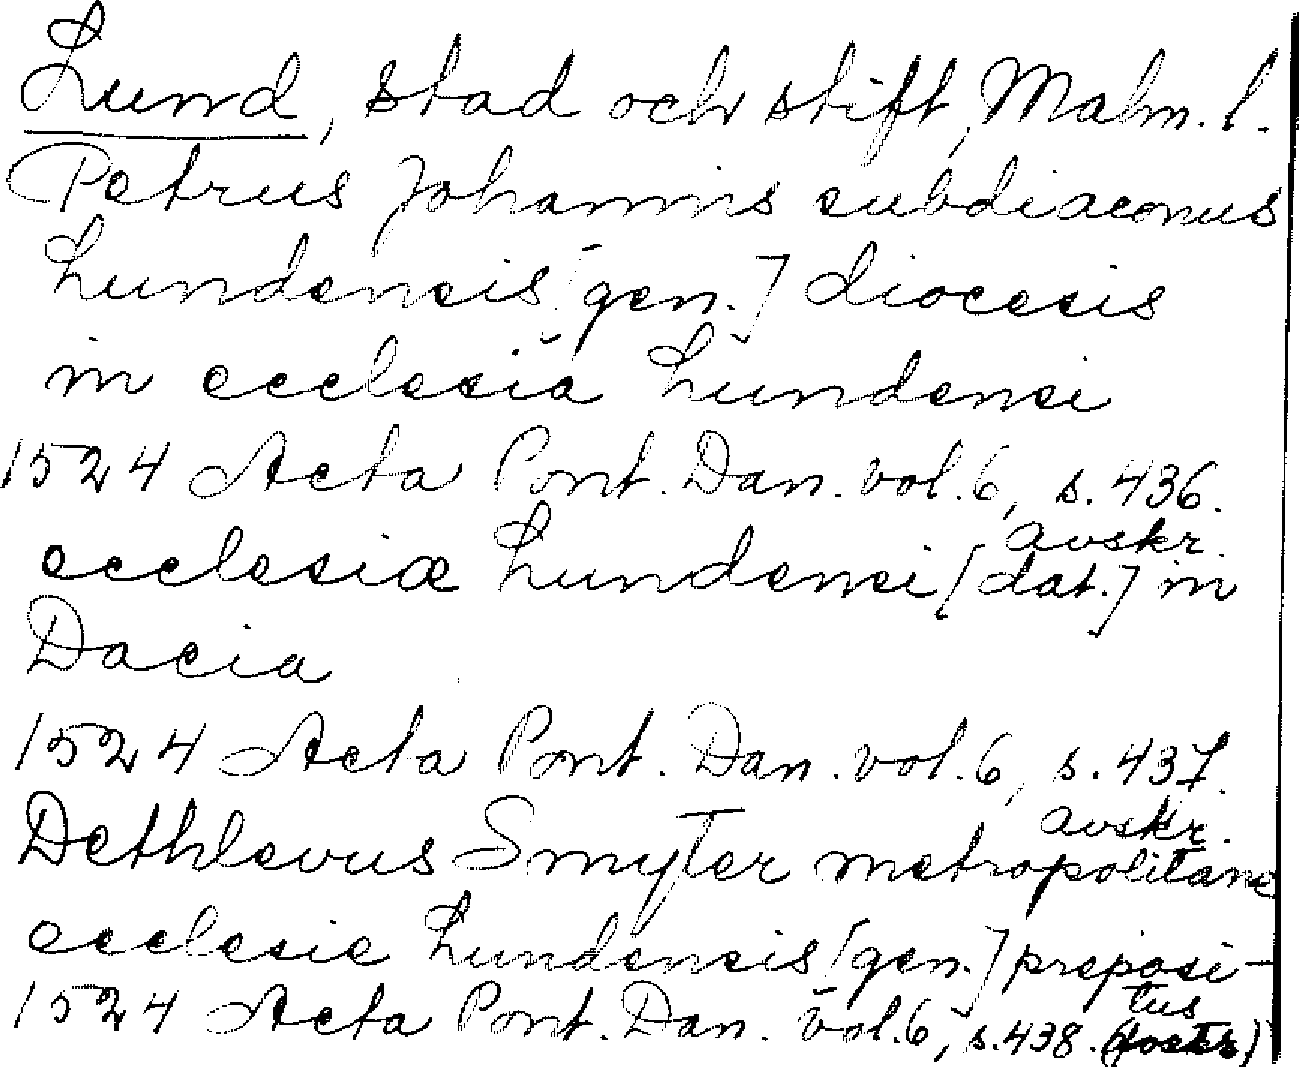 Lund, stad och stift, Malm. l.
Petrus Johannis subdiaconus
Lundensis [gen.] diocesis
in ecclesia Lundensi
1524 Acta Pont. Dan. vol. 6, s. 436.
avskr.
ecclesiæ Lundensi [dat.] in
Dacia
1524 Acta Pont. Dan. vol. 6, s. 437.
avskr.
Dethlevus Smyter metropolitane
ecclesie Lundensis [gen.] preposi-
tus
1524 Acta Pont. Dan. vol. 6, s. 438.